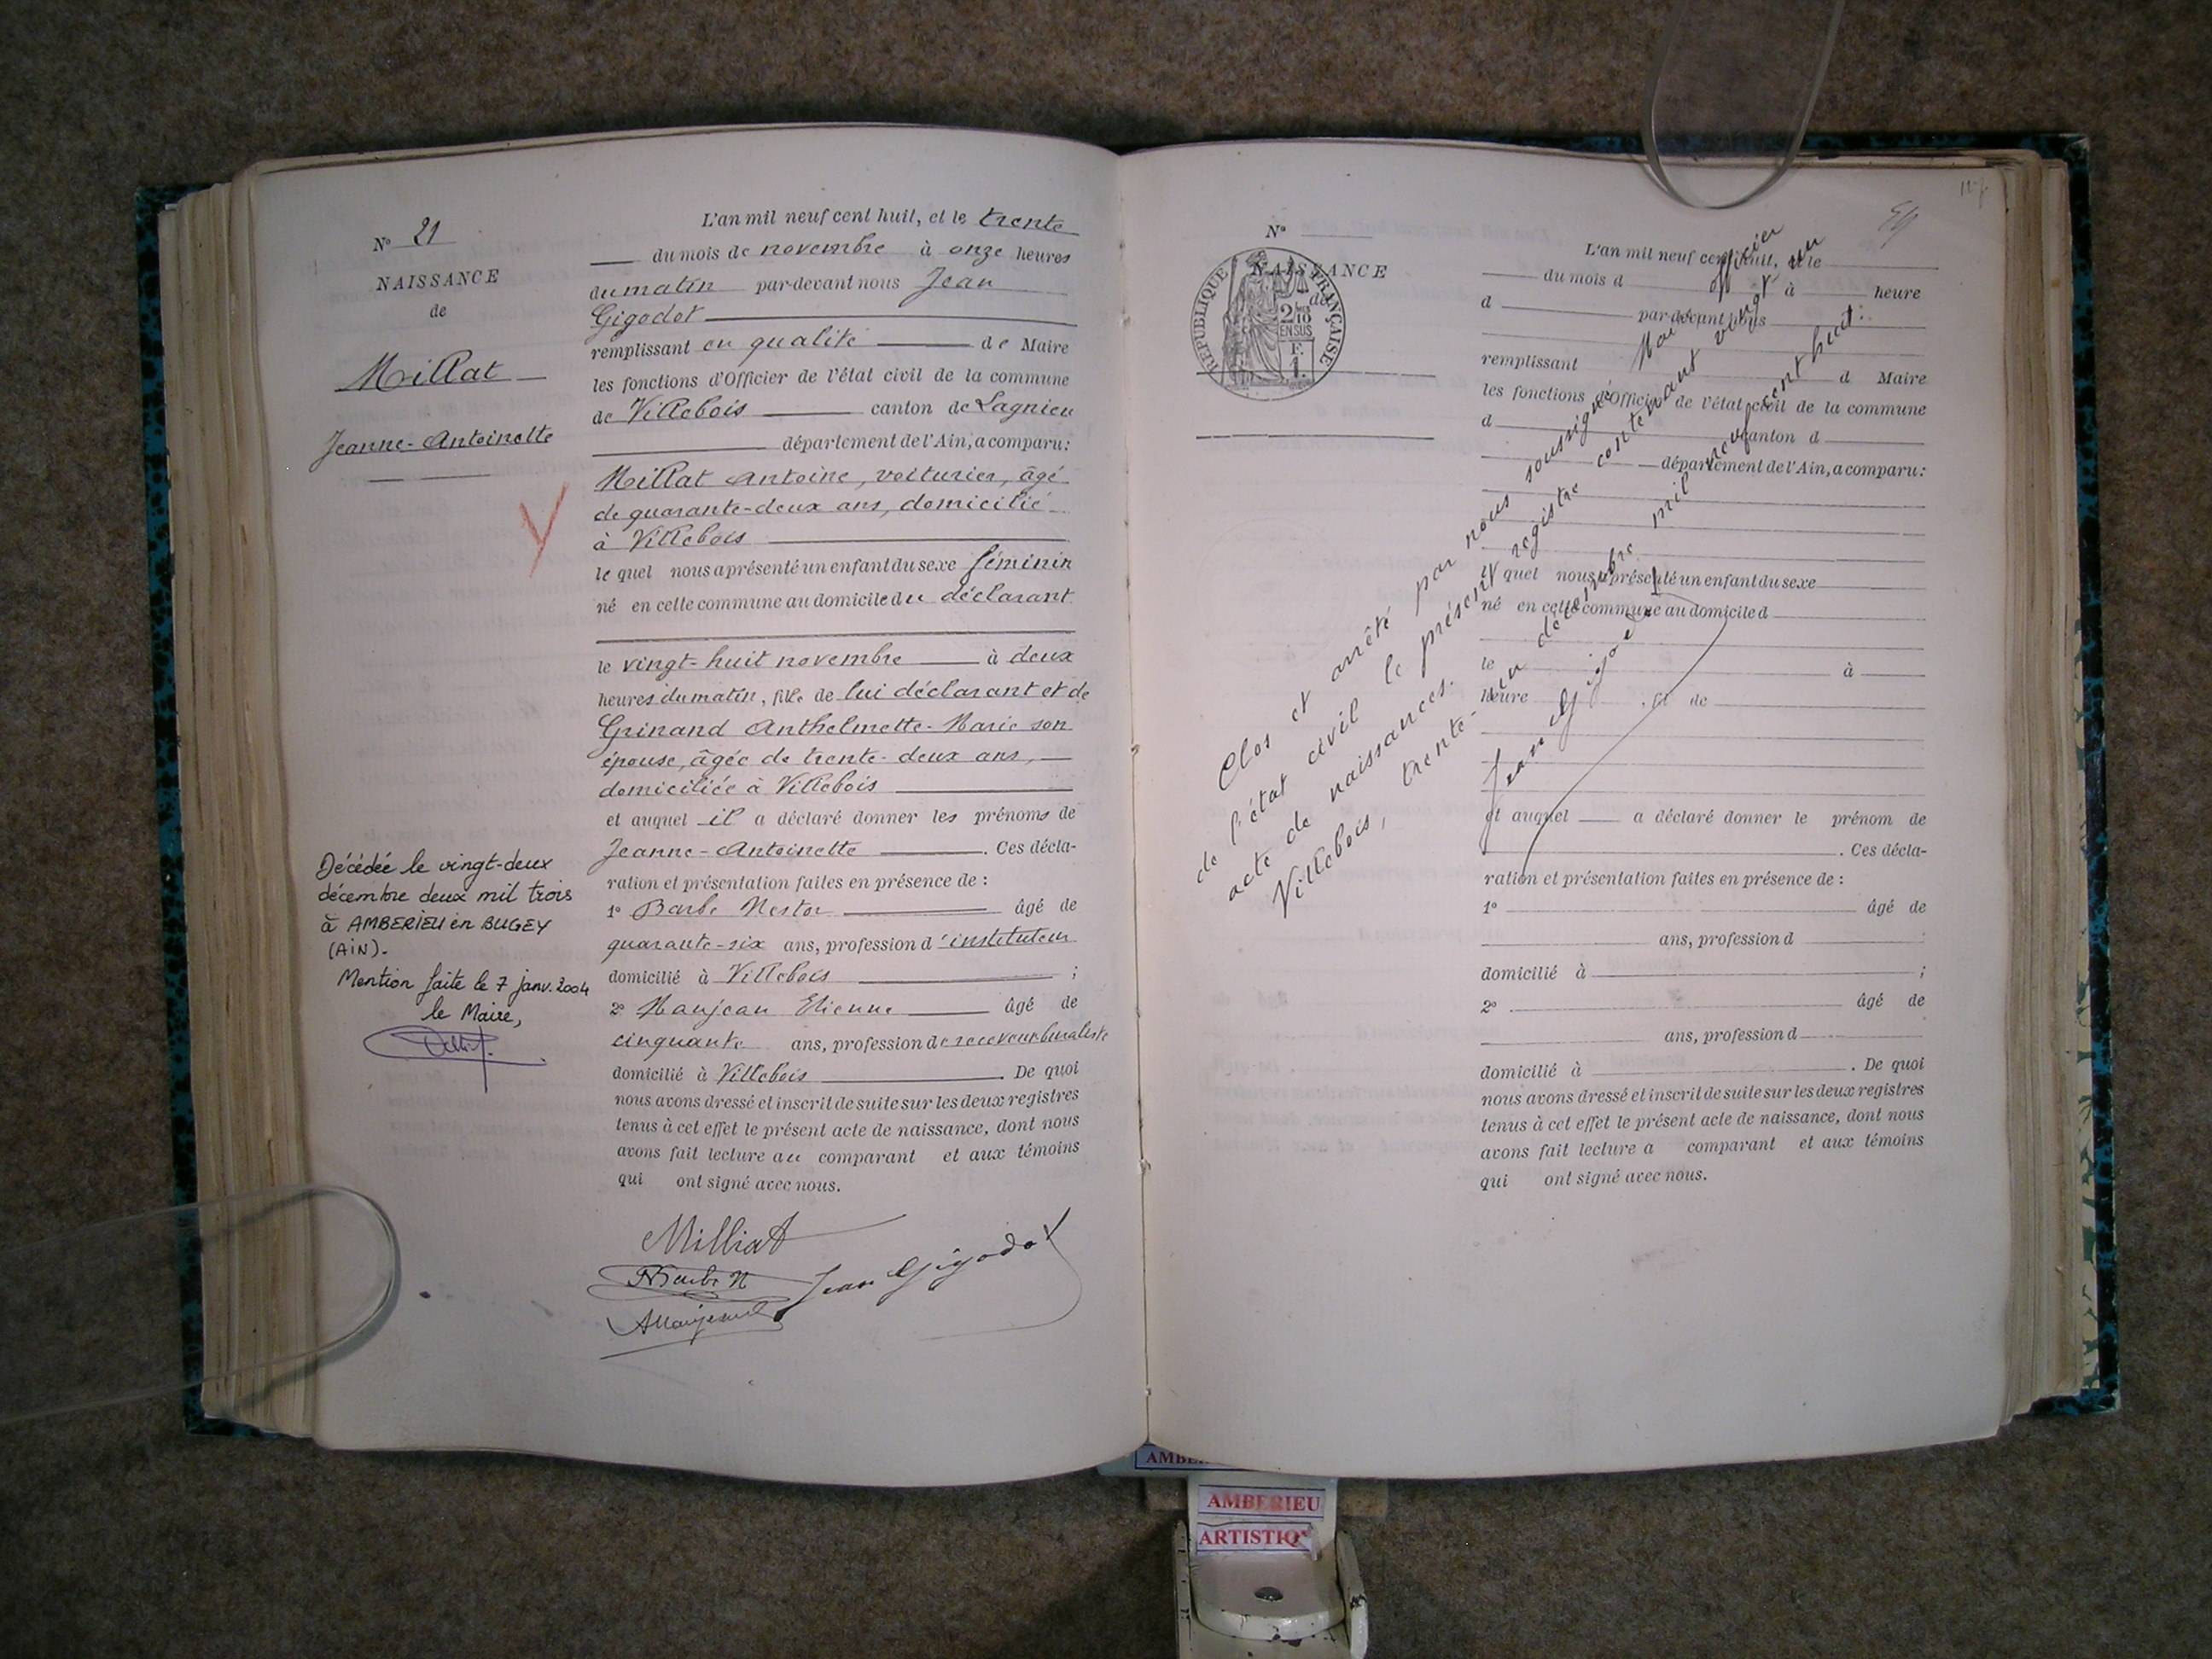 N° 21
NAISSANCE
de
Millat
Jeanne-Antoinette
L'an mil neuf cent huit, et le trente
du mois de novembre à onze heures
du matin par-devant nous Jean
Gigodot
remplissant en qualité de Maire
les fonctions d'Officier de l'état civil de la commune
de Villebois canton de Lagnieu
département de l'Ain, a comparu:
Millat Antoine, voiturier, âgé
de quarante-deux ans, domicilié
à Villebois
le quel nous a présenté un enfant du sexe féminin
né en cette commune au domicile du déclarant
le vingt-huit novembre à deux
heures du matin, fille de lui déclarant et de
Grinand Anthelmette-Marie son
épouse, âgée de trente-deux ans,
domiciliée à Villebois
et auquel il a déclaré donner les prénoms de
Jeanne-Antoinette . Ces décla-
ration et présentation faites en présence de :
1° Barbe Nestor âgé de
quarante-six ans, profession d'instituteur
domicilié à Villebois ;
2° Maujean Etienne âgé de
cinquante ans, profession de receveur buraliste
domicilié à Villebois . De quoi
nous avons dressé et inscrit de suite sur les deux registres
tenus à cet effet le présent acte de naissance, dont nous
avons fait lecture au comparant et aux témoins
qui ont signé avec nous.
Milliat
Barbe N
Jean Gigodot
AMaujean
Décédée le vingt-deux
décembre deux mil trois
à AMBERIEU en BUGEY
(AIN).
Mention faite le 7 janv. 2004
le Maire,
N°
NAISSANCE
de
REPUBLIQUE FRANÇAISE
2/10
EN SUS
F.
1.
L'an mil neuf cent huit, et le
du mois d à heure
d par-devant nous
remplissant d Maire
les fonctions d'Officier de l'état civil de la commune
d canton d
département de l'Ain, a comparu:
le quel nous a présenté un enfant du sexe
né en cette commune au domicile d
le à
heure , fil de
et auquel a déclaré donner le prénom de
. Ces décla-
ration et présentation faites en présence de :
1° âgé de
ans, profession d
domicilié à ;
2° âgé de
ans, profession d
domicilié à . De quoi
nous avons dressé et inscrit de suite sur les deux registres
tenus à cet effet le présent acte de naissance, dont nous
avons fait lecture a comparant et aux témoins
qui ont signé avec nous.
Clos et arrêté par nous soussigné Maire officier
de l'état civil le présent registre contenant vingt un
acte de naissances.
Villebois, trente-un décembre mil neuf cent huit.
Jean Gigodot
AMBERIEU
ARTISTIQ